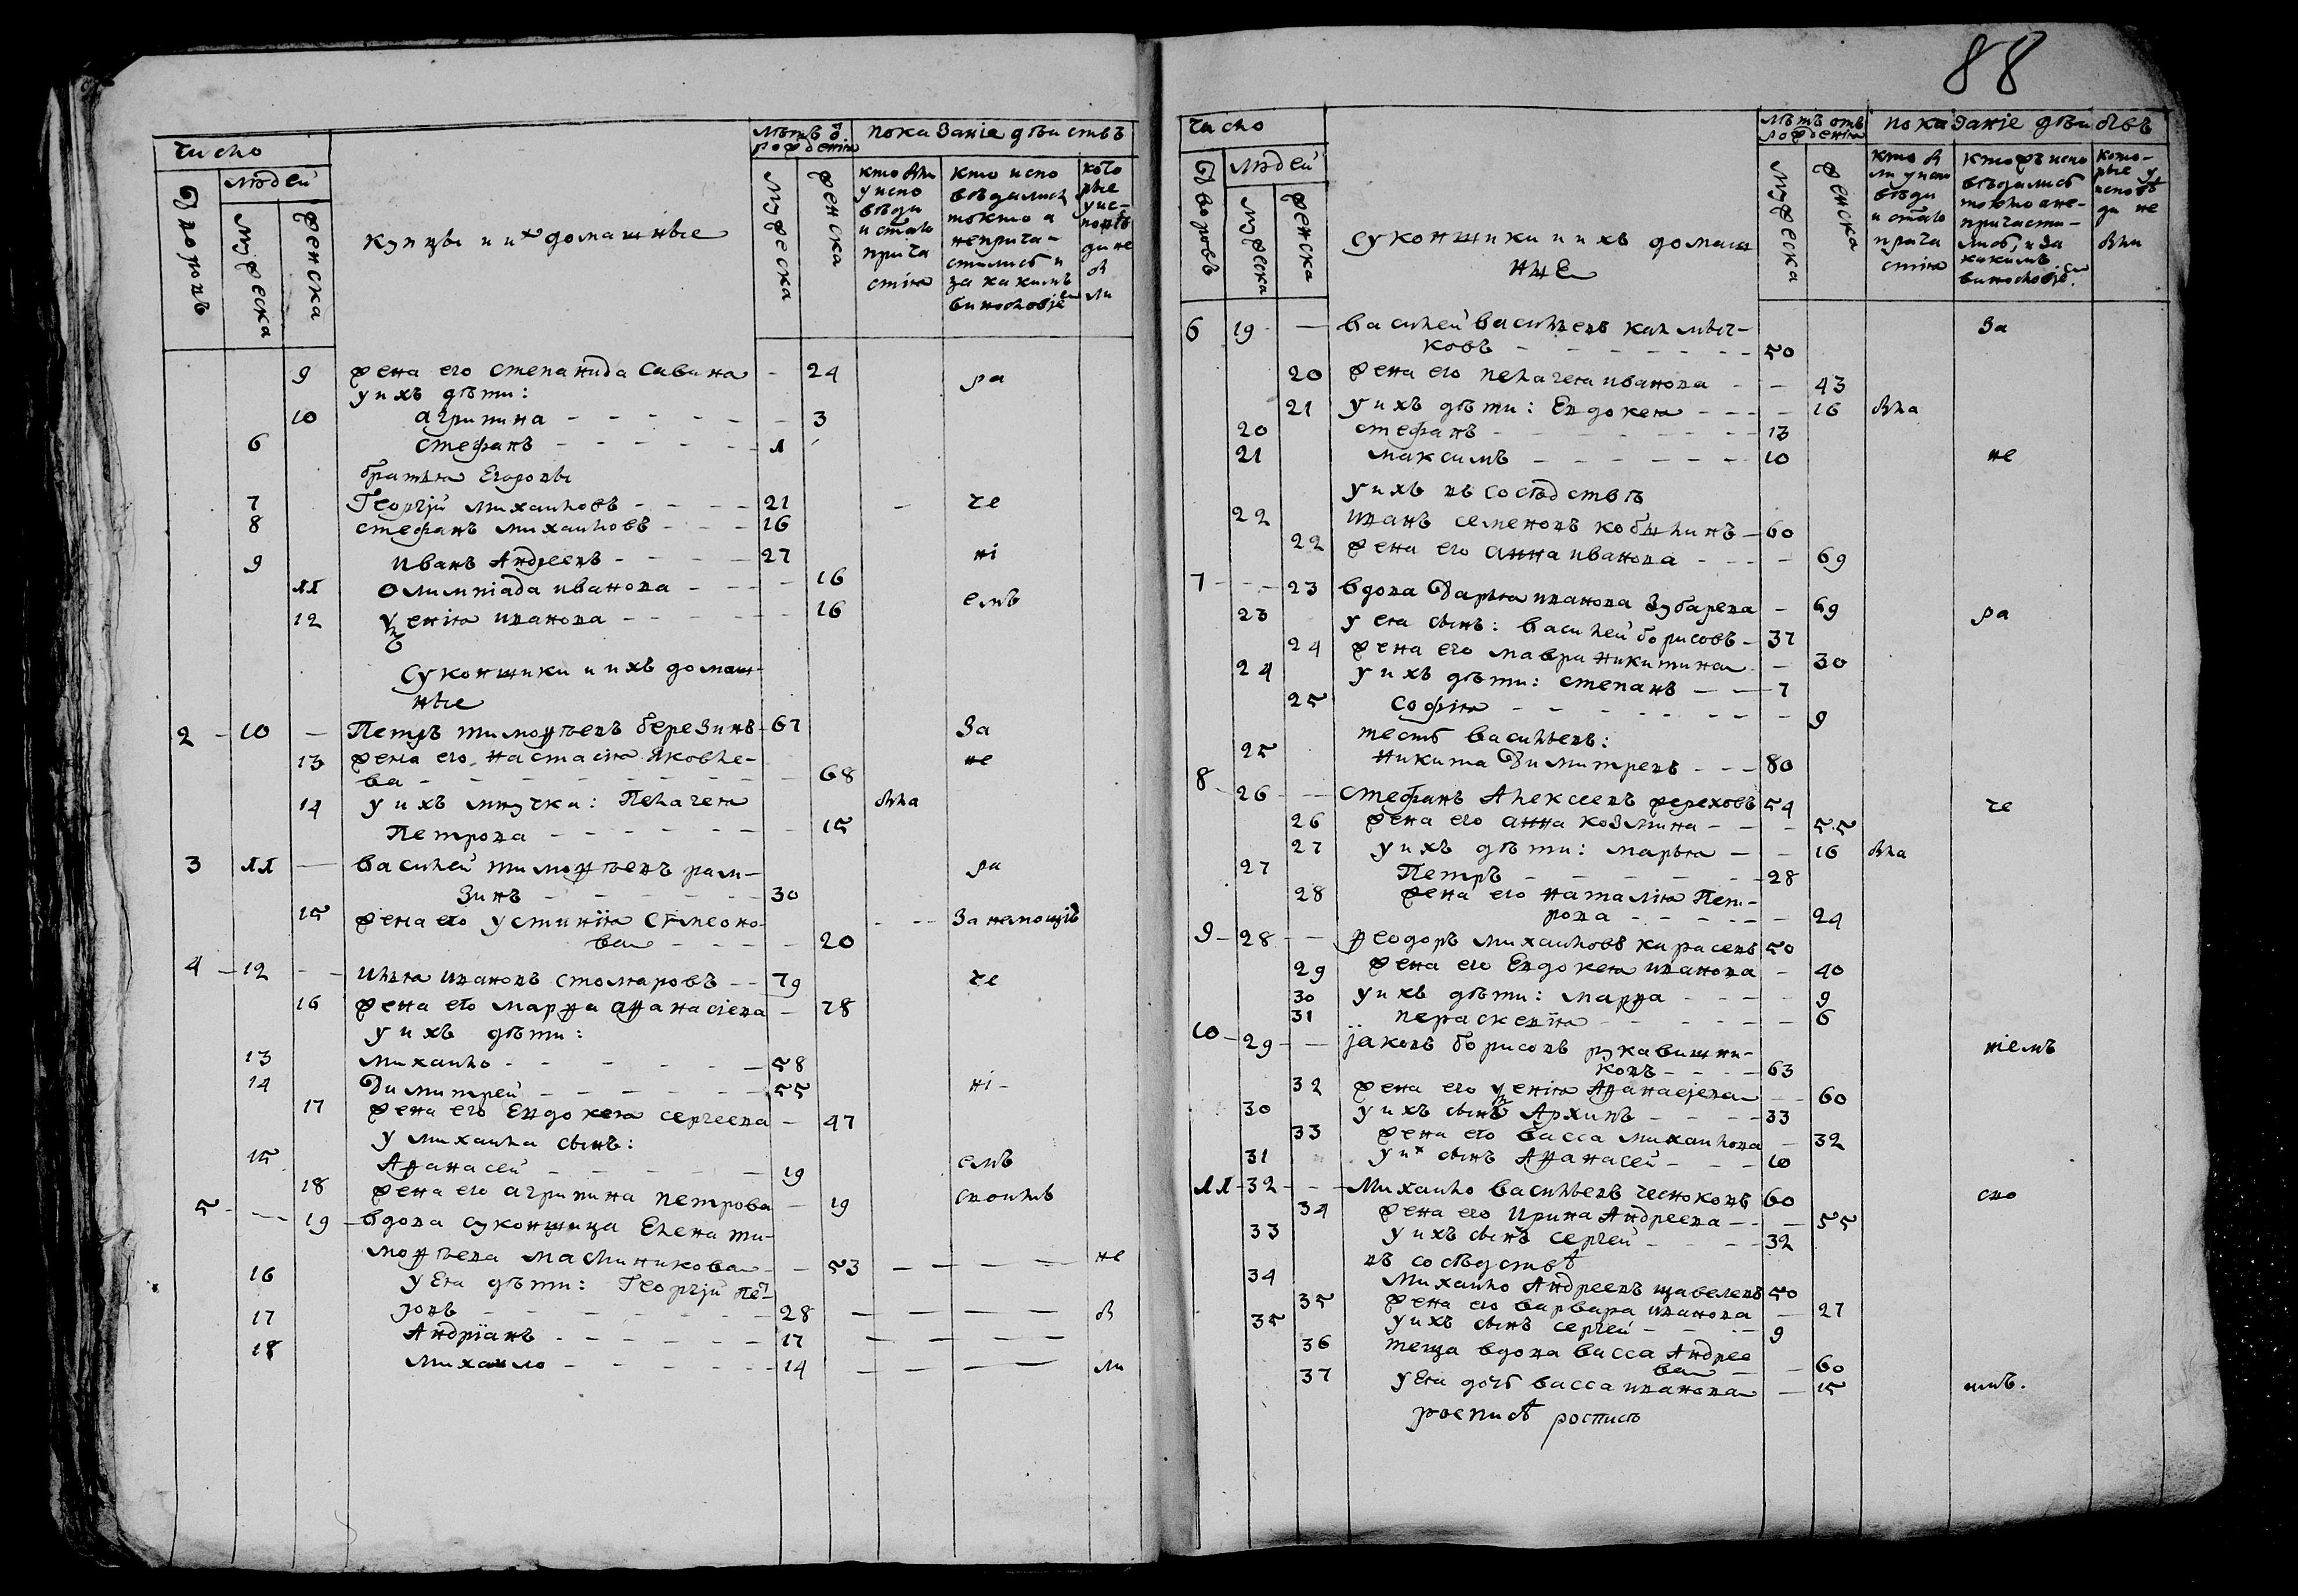 88
число
людей
дворовъ
мужеска
женска
купцы и ихъ домашные
лѣтъ ѿ рожденія
мужеска
женска
показаніе дѣиствъ
кто были у исповѣди и с̃таго причастія
кто исповѣдались токмо а непричастились и за какимъ винословіемъ
кото рые у исповѣди не были
9 жена его степанида савина - 24 ра
у ихъ дѣти:
10 агрипина - - - - - 3
6 стефанъ - - - - - 1
братья Егоровы
7 Георгій михаиловъ - - - 21 - че
8 стефанъ михаиловъ - - - 16
9 иванъ Андреевъ - - - 27 ні
11 олимпіада иванова - - - 16
емъ
12 ѯенія иванова - - - - 16
суконщики и ихъ домаш-
ные
2 - 10 - Петръ тимоѳѣевъ березинъ - 67 За
13 жена его настасія яковле- не
ва - - - - - - - 68
14 у ихъ внучка: Пелагея была
Петрова - - - - - - 15
3 11 - василей тимоѳѣевъ рам- ра
зинъ - - - - - 30
15 жена его устинїя сѵмеоно- - - За немощїю
ва - - - - 20
4 - 12 - - илья ивановъ столяровъ - - 79 че
16 жена его марѳа аѳанасіева - 78
у ихъ дѣти:
13 михаило - - - - - 58
14 Димитрей - - - - - 55 ні -
17 жена его Евдокея сергеева - 47
у михаила сынъ:
15 Аѳанасей - - - - - 19 емъ
18 жена его агрипина петрова - 19 своимъ
5 - - 19 - вдова суконщица Елена ти-
моѳѣева масляникова - - 53 - - - - не
16 у Ея дѣти: Георгій пет-
ровъ - - - - - 28 - - - - бы
17 Андрїанъ - - - - - 17 - - - -
18 михаило - - - - - 14 - - - - ли
число
людей
дворовъ
мужеска
женска
суконщики и ихъ домаш
ние
лѣтъ отъ рожденія
мужеска
женска
показаніе дѣиствъ
кто были у исповѣди и с̃таго причастія
кто жъ исповѣдались токмо а непричастились, и за какимъ винословіемъ
кото- рые у исповѣди не были
6 19 - - василей васильевъ калмыч- За
ковъ - - - - - - 50
20 жена его пелагея иванова - - 43
21 у ихъ дѣти: Евдокея - - - - 16 была
20 стефанъ - - - - - - 13
21 максимъ - - - - - - 10 не
у ихъ въ сосѣдствѣ
22 иванъ семеновъ кобылинъ - 60
22 жена его анна иванова - - - 69
7 - - - 23 вдова Дарья иванова Зубарева - 69
23 у ея сынъ: василей борисовъ - 37 ра
24 жена его мавра никитина - 30
24 у ихъ дѣти: степанъ - - - 7
25 софія - - - - - - - 9
тесть васильевъ:
25 никита Димитревъ - - - 80
8 - 26 - - стефанъ Алексеевъ жереховъ 54 че
26 жена его анна козмина - - - 55
27 у ихъ дѣти: марья - - 16 была
27 Петръ - - - - - 28
28 жена его наталія Пет-
рова - - - - - 24
9 - 28 - - ѳеодоръ михаиловъ карасевъ 50
29 жена его Евдокея иванова - 40
30 у ихъ дѣти: марѳа - - - - 9
31 пераскевїя - - - - - 6
10 - 29 - - јаковъ борисовъ рукавишни- ніемъ
ковъ - - - - 63
32 жена его ѯенія Аѳанасјева - - 60
30 у ихъ сынъ Архипъ - - - - 33
33 жена его васса михаилова - 32
31 у их сынъ Аѳанасей - - - 10
11 - 32 - - - михаило васильевъ чесноковъ 60 сво
34 жена его ирина Андреева - - - 55
33 у ихъ сынъ сергей - - - - 32
въ сосѣдствѣ
34 михаило Андреевъ щавелевъ 50
35 жена его варвара иванова - 27
35 у ихъ сынъ сергей - - - - 9
36 теща вдова васса Андрее
ва - - 60
37 у Ея дочь васса иванова - 15 имъ.
роспись роспись